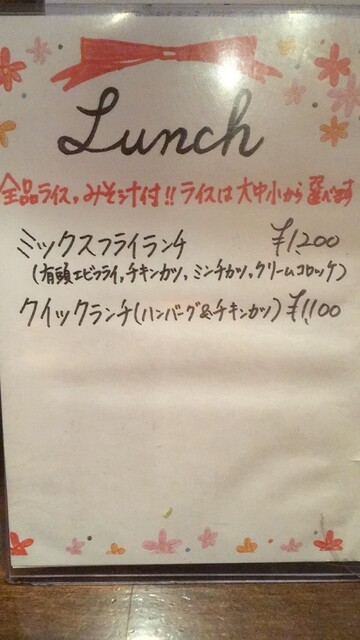 Lunch
全品ライス,みそ汁付!!ライスは大中小から選べます
ミックスフライランチ ¥1,200
(有頭エビフライ,チキンカツ,ミンチカツ,クリームコロッケ)
クイックランチ(ハンバーグ&チキンカツ) ¥1,100